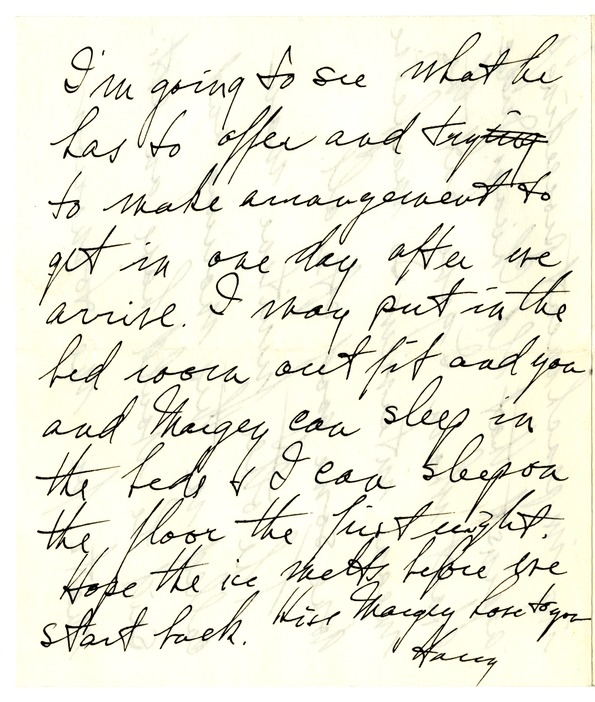 I'm going to see what he
has to offer and trying
to make arrangement to
get in one day after we
arrive. I may put in the
bed room outfit and you
and Margey can sleep in
the beds & I can sleep on
the floor the first night.
Hope the ice melts before we
start back. Kiss Margey love to you
Harry